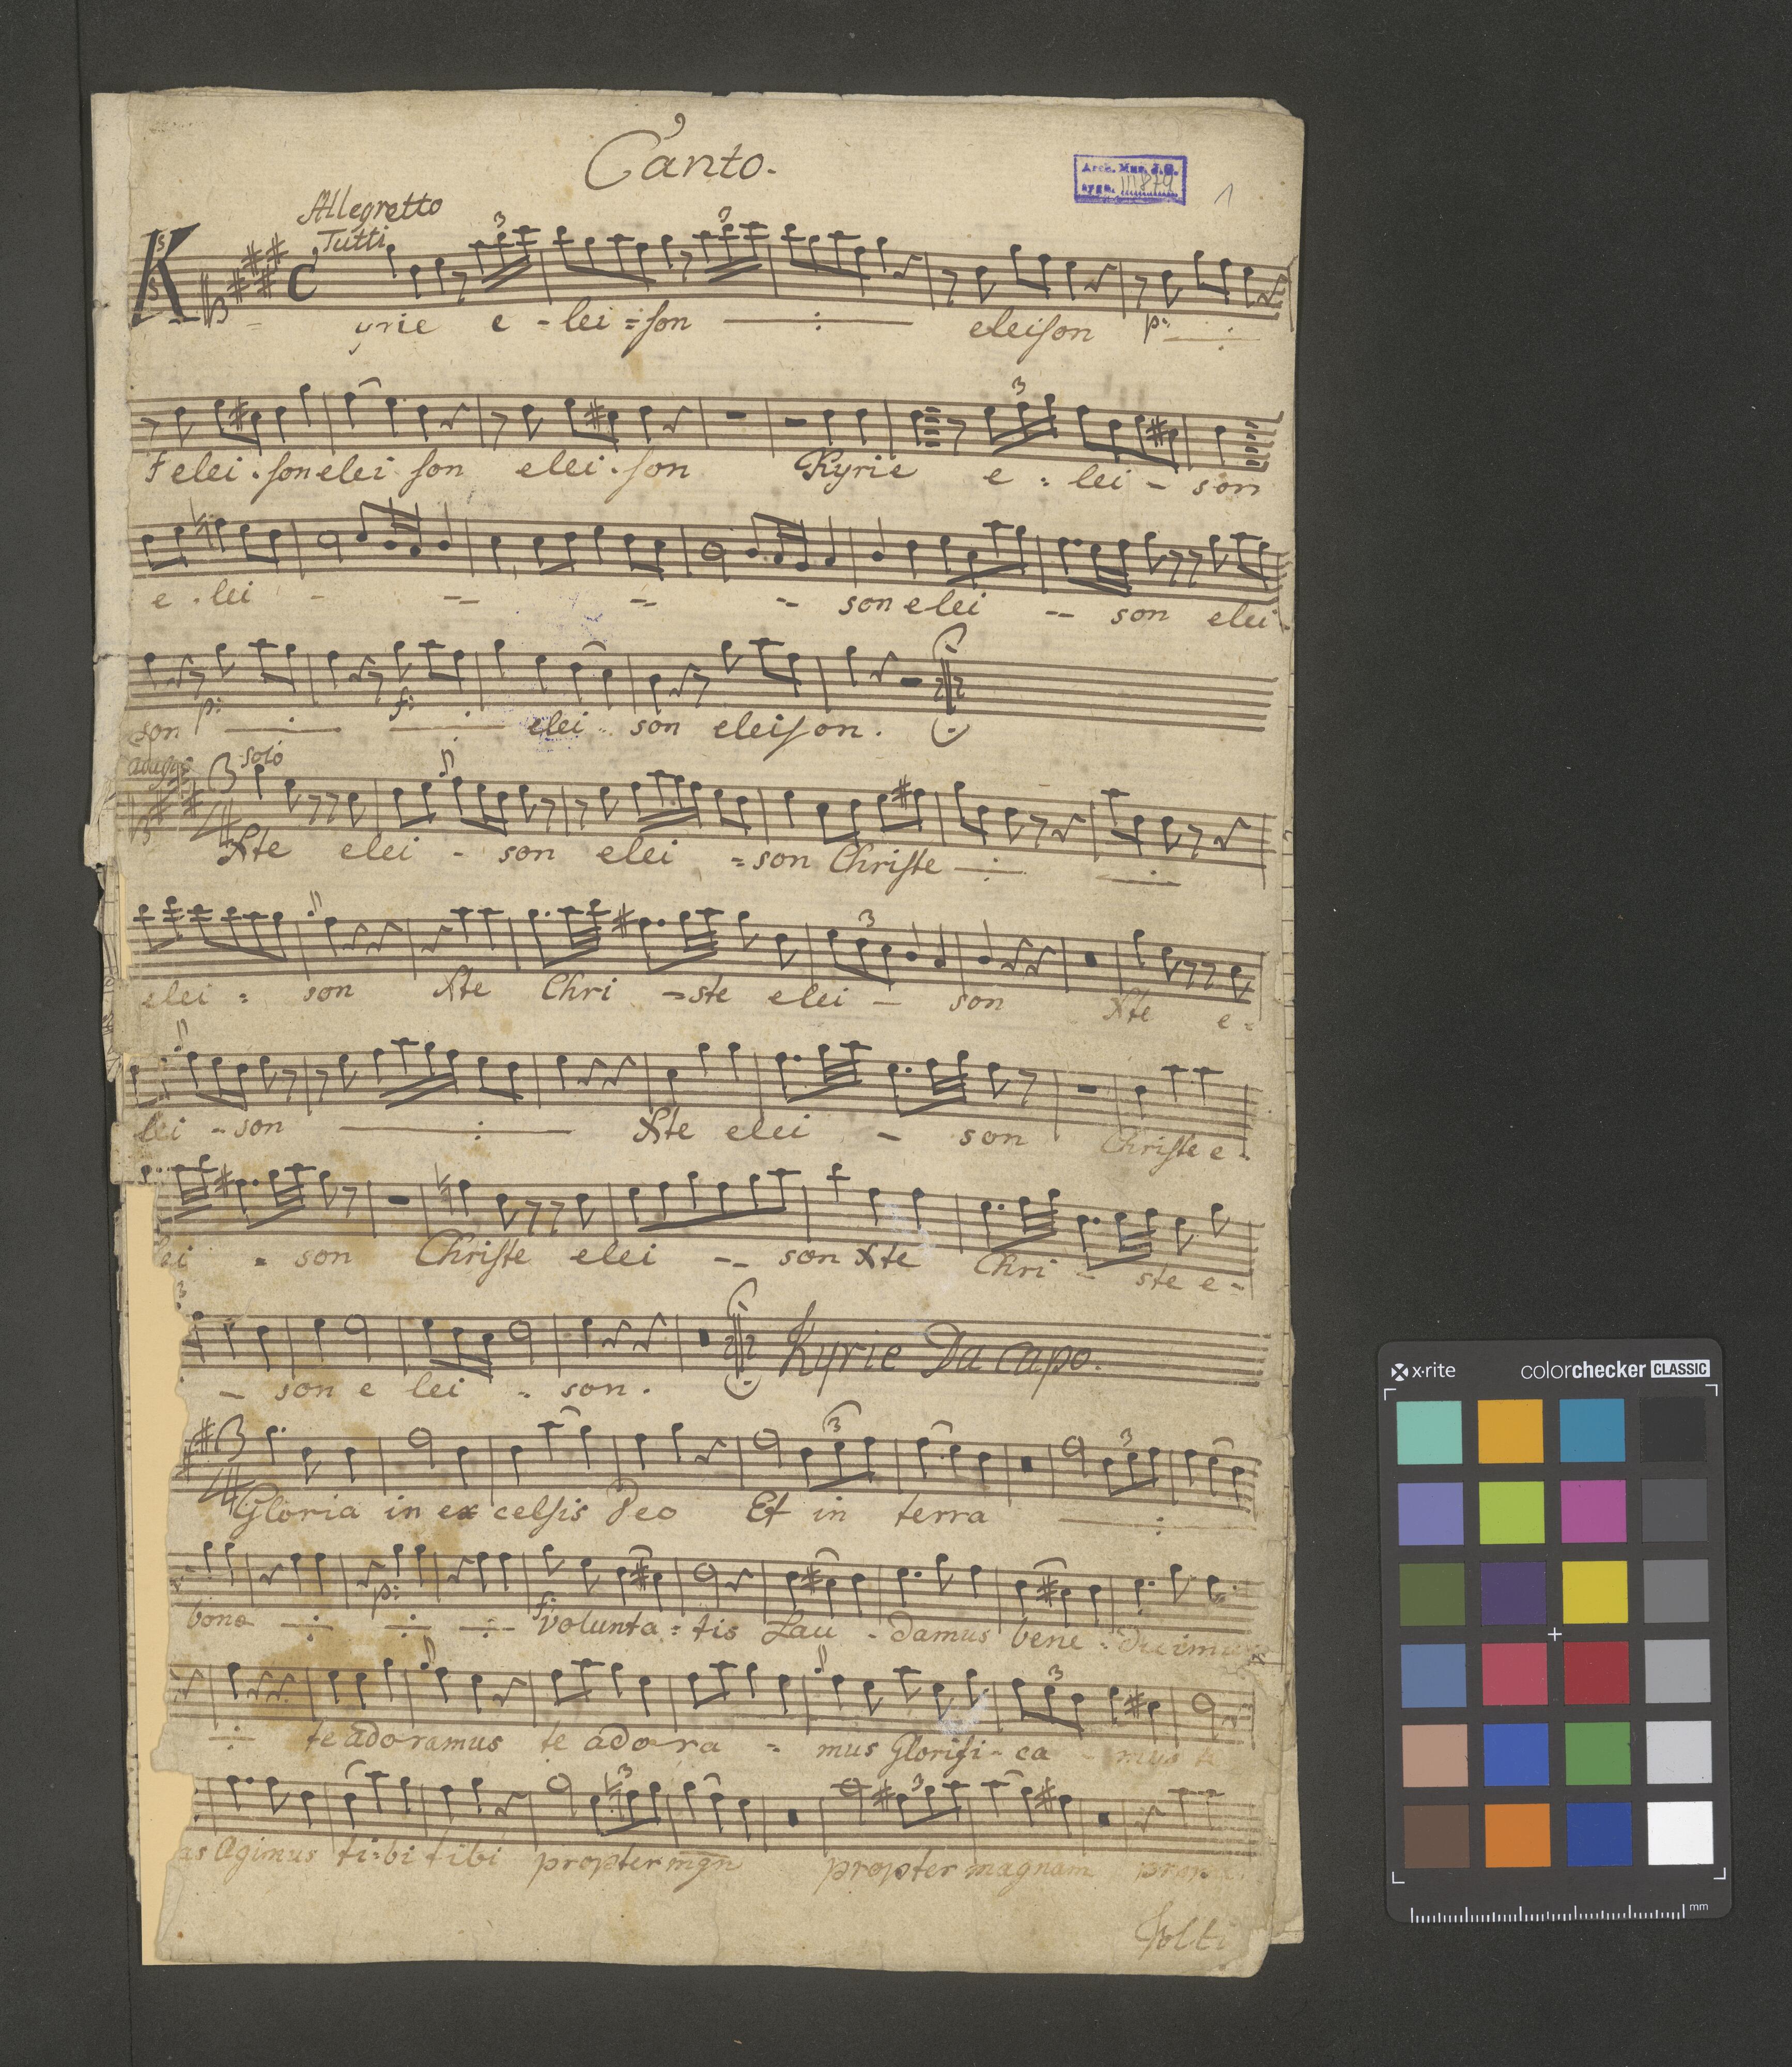 Canto.
Arch. Mus. J.G.
sygn. III 879
1
Allegretto
Tutti
Kyrie e - lei = son ÷ eleison p: ÷
f elei . son elei son elei . son Kyrie e : lei - son
e . lei - -- -- -- son elei -- son elei -
son p: ÷ f: ÷ elei son eleison .
adagio solo
Xte elei - son elei = son Christe ÷ ÷
elei = son Xte Chri - ste elei - son Xte e =
lei - son ÷ Xte elei - son Christe e .
lei = son Christe elei -- son Xte Chri - ste e -
- son e lei . son . Kyrie Da capo.
Gloria in ex celsis Deo Et in terra ÷
bone ÷ p: ÷ ÷ f: volunta = tis Lau - damus bene =
÷ te adoramus te adora = mus Glorifi - ca - mus
as Agimus ti = bi tibi propter mgn propter magnam
Volti
x·rite colorchecker CLASSIC
mm